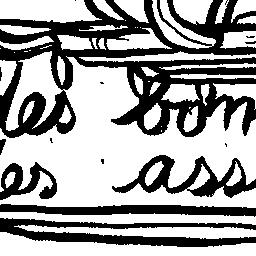 les bom
es ass